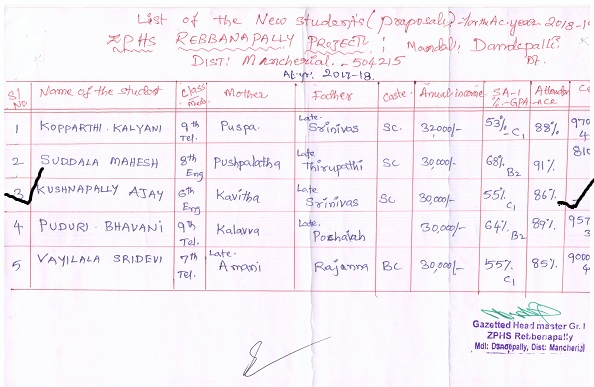 List of the New students (Proposals) for the Ac.year 2018-19
ZPHS REBBANAPALLY PROJECT; Mandal: Dandepalli.
DIST: Mancherial.-504215
2017-18.
Sl No Name of the student Class Med. Mother Father Caste. Annual income SA-1 %-GPA Attendance
1 KOPPARTHI. KALYANI 9th Tel. Puspa. Late. Srinivas SC. 32000/- 53% C1 88% 970
2 SUDDALA MAHESH 8th Eng Pushpalatha Late Thirupathi SC 30,000/- 68% B2 91% 810
3 KUSHNAPALLY AJAY 6th Eng Kavitha Late Srinivas SC 30,000/- 55% C1 86%
4 PUDURI. BHAVANI 9th Tel. Kalavva Late. Poshaiah 30,000/- 64% B2 89% 957
5 VAYILALA SRIDEVI 7th Tel. Late. Amani Rajanna BC 30,000/- 55% C1 85% 9000
Gazetted Head master Gr. I
ZPHS Rebbenapally
Mdl: Dandepally, Dist: Mancherial